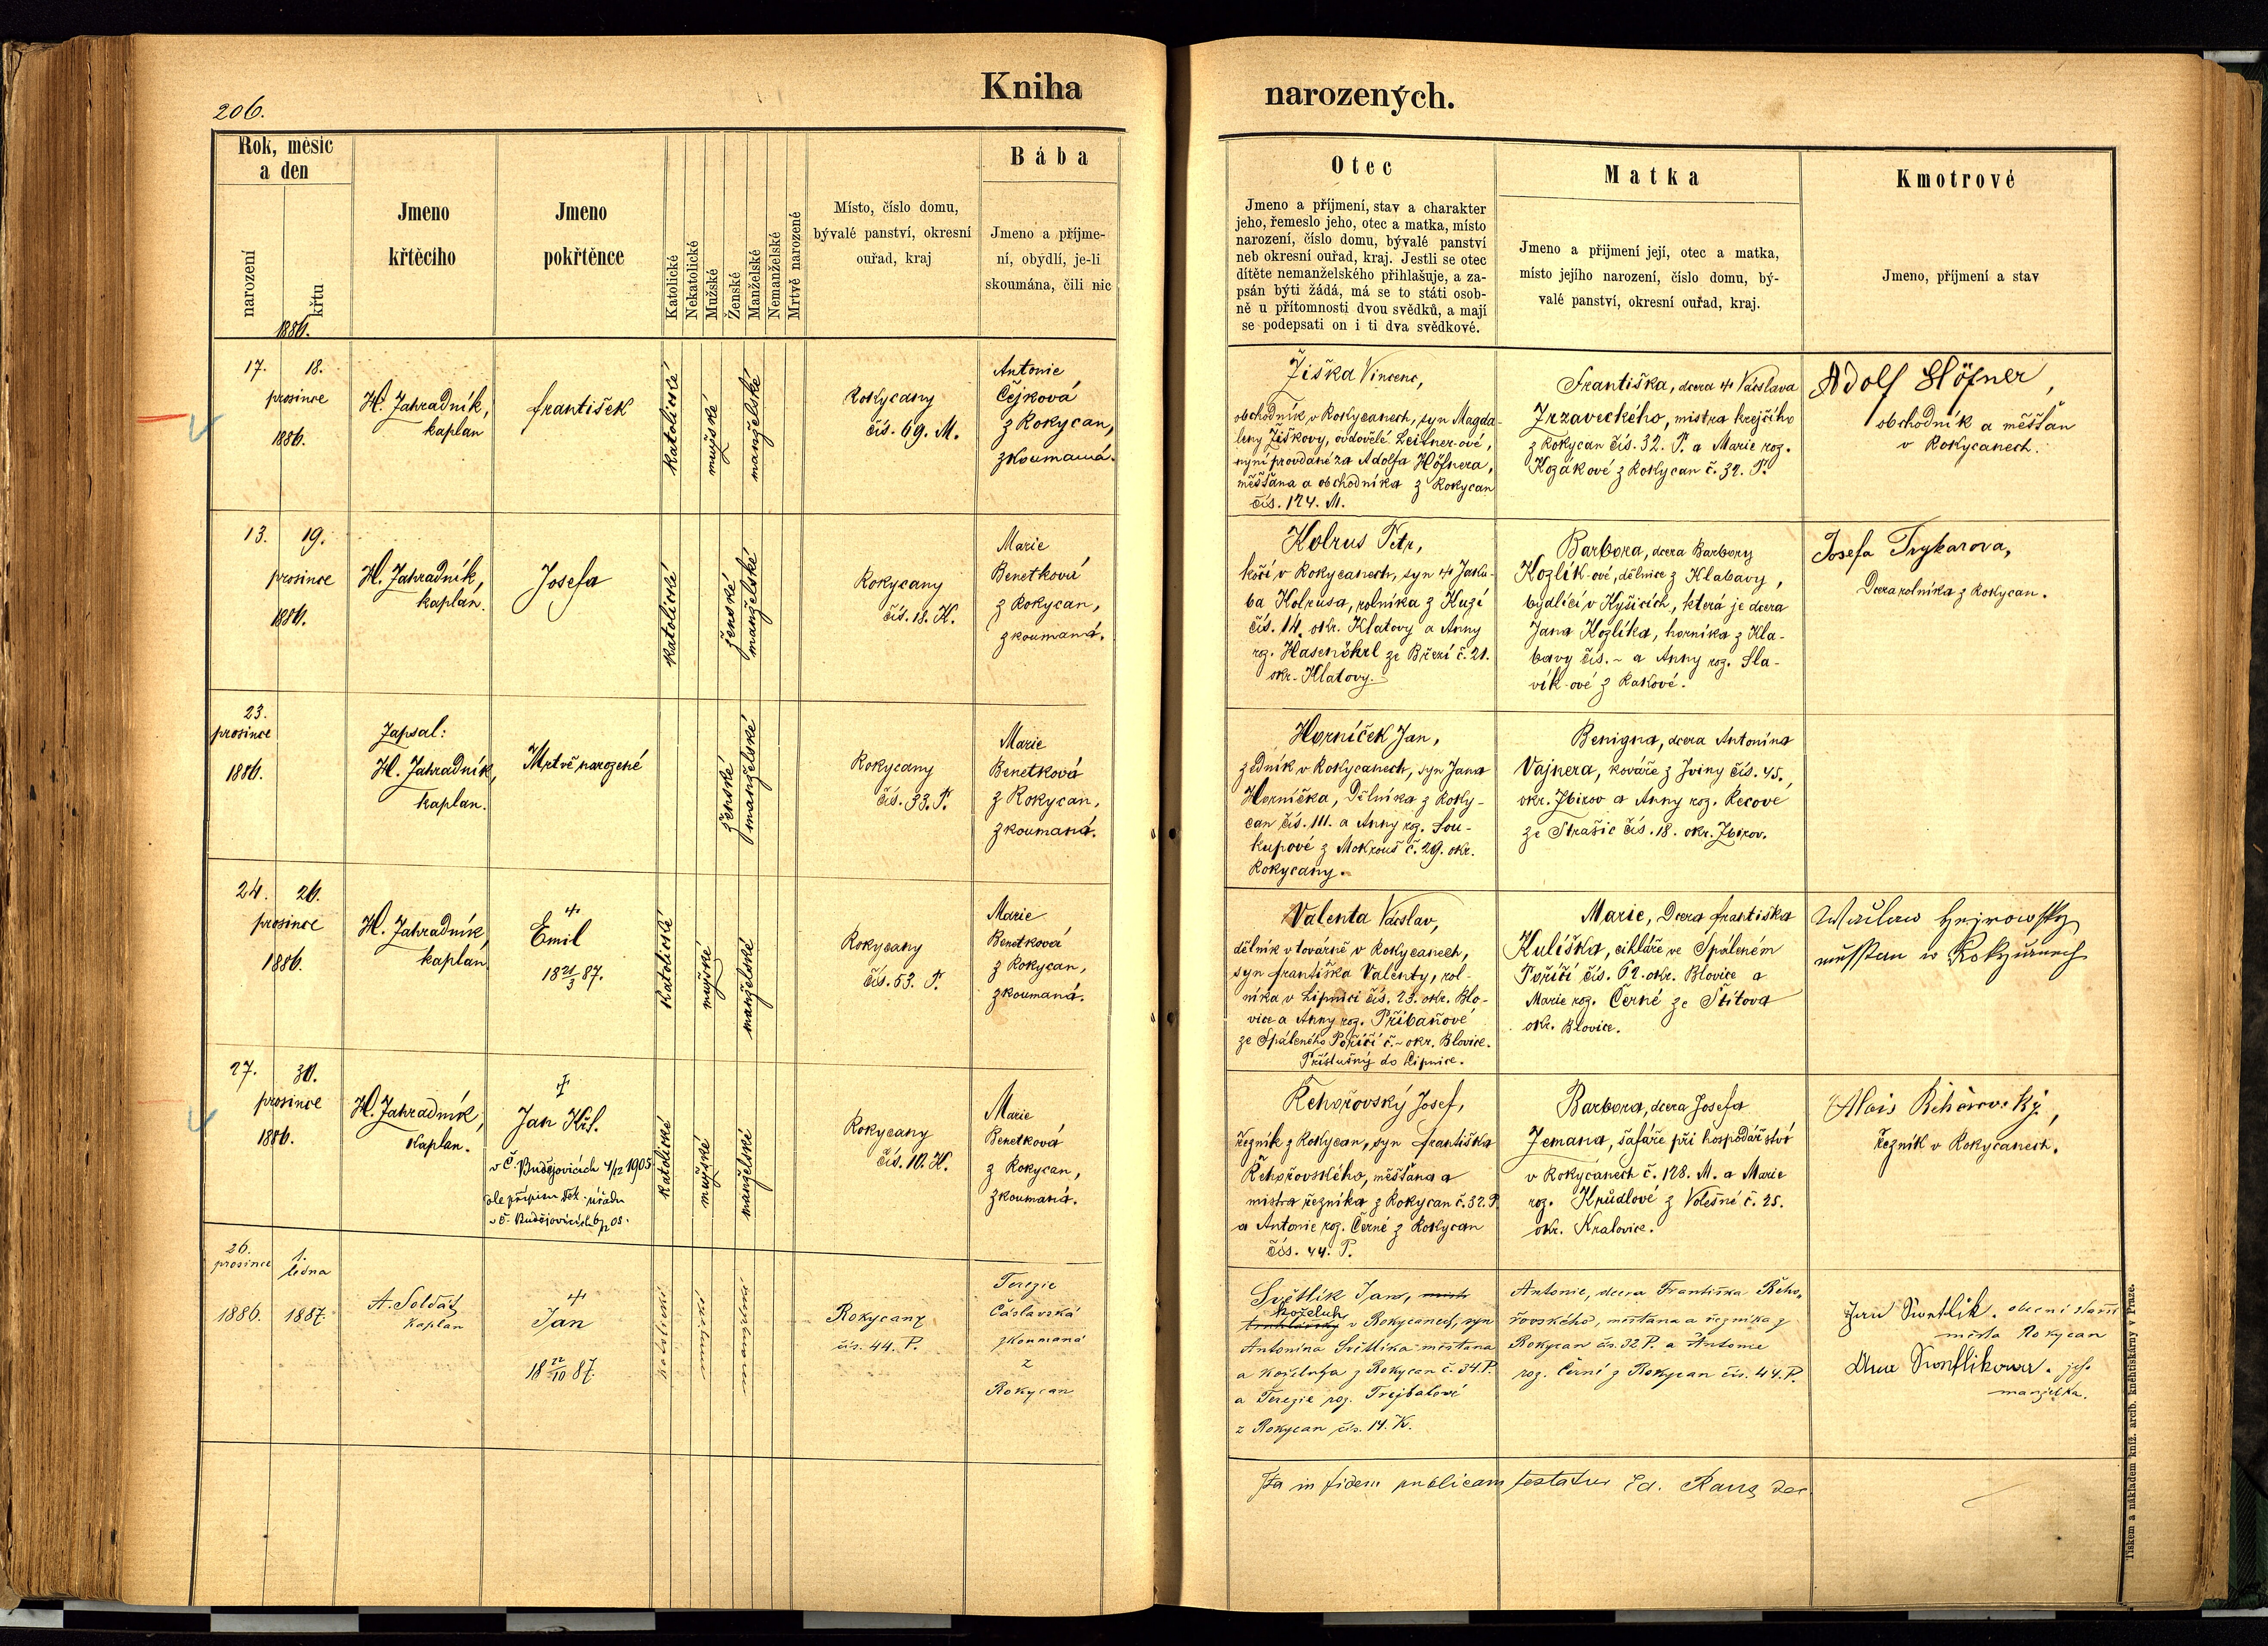 206.
Kniha
narozených.
Rok, měsíc
a den
narození
křtu
1886.
Jmeno
křtěcího
Jmeno
pokřtěnce
Katolické
Nekatolické
Mužské
Ženské
Manželské
Nemanželské
Mrtvě narozené
Místo, číslo domu,
bývalé panství, okresní
ouřad, kraj
Bába
Jmeno a příjme-
ní, obydlí, je-li
skoumána, čili nic
Otec
Jmeno a příjmení, stav a charakter
jeho, řemeslo jeho, otec a matka, místo
narození, číslo domu, bývalé panství
neb okresní ouřad, kraj. Jestli se otec
dítěte nemanželského přihlašuje, a za-
psán býti žádá, má se to státi osob-
ně u přítomnosti dvou svědků, a mají
se podepsati on i ti dva svědkové.
Matka
Jmeno a přijmení její, otec a matka,
místo jejího narození, číslo domu, bý-
valé panství, okresní ouřad, kraj.
Kmotrové
Jmeno, příjmení a stav
17. 18.
prosince
1886.
H. Zahradník,
kaplan
František
katolické
mužské
manželské
Rokycany
čís. 69. M.
Antonie
Čejková
z Rokycan,
zkoumaná.
Žiška Vincenc,
obchodník v Rokycanech, syn Magda-
leny Žiškovy, ovdovělé Leitner-ové,
nyní provdané za Adolfa Höfnera,
měšťana a obchodníka z Rokycan
čís. 174. M.
Františka, dcera † Václava
Zrzaveckého, mistra krejčího
z Rokycan čís. 32. P. a Marie roz.
Kozákové z Rokycan č. 32. P.
Adolf Höfner,
obchodník a měšťan
v Rokycanech.
13. 19.
prosince
1886.
H. Zahradník,
kaplan.
Josefa
katolické
ženské
manželské
Rokycany
čís. 18. K.
Marie
Benetková
z Rokycan,
zkoumaná.
Kolrus Petr,
kočí v Rokycanech, syn † Jaku-
ba Kolrusa, rolníka z Kuzí
čís. 14. okr. Klatovy a Anny
roz. Hasenöhrl ze Březí č. 21.
okr. Klatovy.
Barbora, dcera Barbory
Kozlík-ové, dělnice z Klabavy,
bydlící v Kyšicích, která je dcera
Jana Kozlíka, horníka z Kla-
bavy čís. ~ a Anny roz. Sla-
vík-ové z Rakové.
Josefa Trykarova,
Dcera rolníka z Rokycan.
23.
prosince
1886.
Zapsal:
H. Zahradník,
kaplan.
Mrtvě narozené
ženské
manželské
Rokycany
čís. 33. P.
Marie
Benetková
z Rokycan,
zkoumaná.
Horníček Jan,
zedník v Rokycanech, syn Jana
Horníčka, Dělníka z Roky-
can čís. 111. a Anny roz. Sou-
kupové z Mokrouš č. 29. okr.
Rokycany.
Benigna, dcera Antonína
Vajnera, kováře z Jviny čís. 45.,
okr. Zbirov a Anny roz. Recové
ze Strašic čís. 18. okr. Zbirov.
24. 26.
prosince
1886.
H. Zahradník,
kaplan
†
Emil
18 21/3 87.
katolické
mužské
manželské
Rokycany
čís. 53. P.
Marie
Benetková
z Rokycan,
zkoumaná.
Valenta Václav,
dělník v továrně v Rokycanech,
syn Františka Valenty, rol-
níka v Lipnici čís. 23. okr. Blo-
vice a Anny roz. Přibaňové
ze Spáleného Poříčí č. ~ okr. Blovice.
Příslušný do Lipnice.
Marie, Dcera Františka
Kuliška, cihláře ve Spáleném
Poříčí čís. 62. okr. Blovice a
Marie roz. Černé ze Štítova
okr. Blovice.
27. 30.
prosince
1886.
H. Zahradník,
kaplan.
†
Jan Křt.
v Č. Budějovicích 4/12 1905
dle přípisu děk. úřadu
v Č. Budějovicích 6/12 05.
katolické
mužské
manželské
Rokycany
čís. 10. K.
Marie
Benetková
z Rokycan,
zkoumaná.
Řehořovský Josef,
řezník z Rokycan, syn Františka
Řehořovského, měšťana a
mistra řezníka z Rokycan č. 32. P.
a Antonie roz. Černé z Rokycan
čís. 44. P.
Barbora, dcera Josefa
Zemana, šafáře při hospodářství
v Rokycanech č. 128. M. a Marie
roz. Knůdlové z Volešné č. 25.
okr. Kralovice.
Alois Řihořovský,
řezník v Rokycanech.
26. 1.
prosince ledna
1886. 1887.
A. Soldát
kaplan
†
Jan
18 22/10 87.
katolické
mužské
manželské
Rokycany
čís. 44. P.
Terezie
Čáslavská
zkoumaná
z
Rokycan
Světlík Jan,
koželuh
v Rokycanech, syn
Antonína Světlíka měšťana
a koželuha z Rokycan č. 34. P.
a Terezie roz. Trejbalové
z Rokycan čís. 14. K.
Antonie, dcera Františka Řeho-
řovského, měšťana a řezníka z
Rokycan čís. 32 P. a Antonie
roz. Černé z Rokycan čís. 44. P.
Jan Swětlík. obecní starší
města Rokycan
Anna Swětlikowa. jeho
manželka.
Ita in fidem publicam testatur Ed. Rauš dec.
Tiskem a nákladem kníž. arcib. knihtiskárny v Praze.